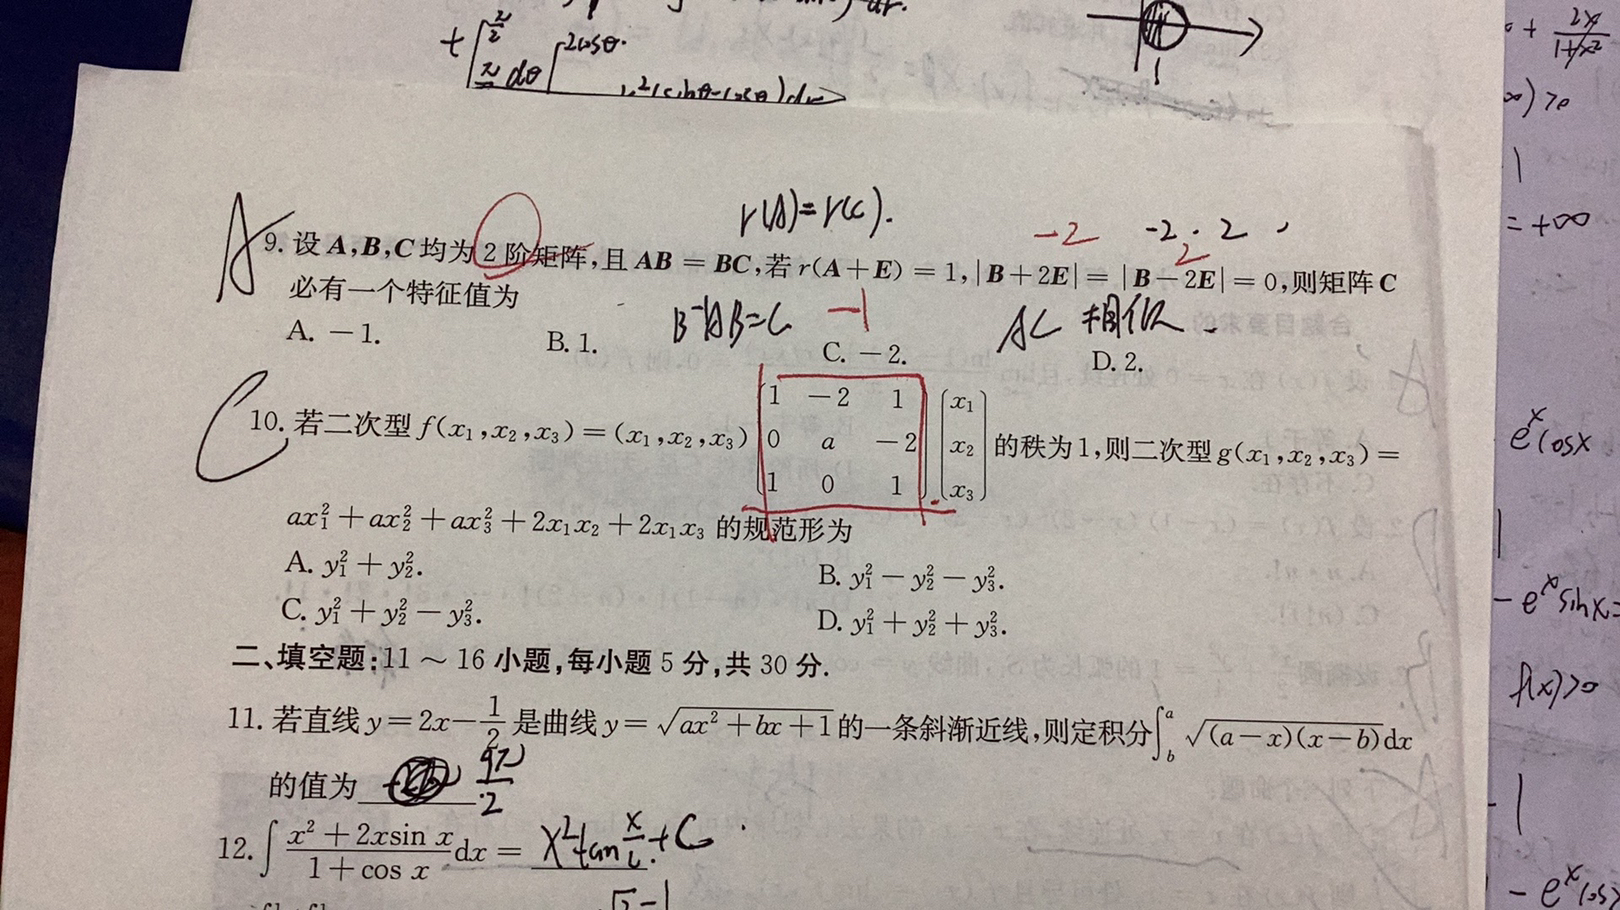 2cosθ.
dθ
r(A)=r(C).
-2 -2. 2
2
A
9. 设 A,B,C 均为 2 阶矩阵,且 AB = BC,若 r(A+E) = 1,|B+2E| = |B-2E| = 0,则矩阵 C
必有一个特征值为
B⁻¹AB=C -1 AC 相似
A. -1. B. 1. C. -2. D. 2.
C
10. 若二次型 f(x₁,x₂,x₃) = (x₁,x₂,x₃) [1 -2 1; 0 a -2; 1 0 1] [x₁; x₂; x₃] 的秩为 1,则二次型 g(x₁,x₂,x₃) =
ax₁² + ax₂² + ax₃² + 2x₁x₂ + 2x₁x₃ 的规范形为
A. y₁² + y₂². B. y₁² - y₂² - y₃².
C. y₁² + y₂² - y₃². D. y₁² + y₂² + y₃².
二、填空题:11 ~ 16 小题,每小题 5 分,共 30 分.
11. 若直线 y = 2x - 1/2 是曲线 y = √(ax² + bx + 1) 的一条斜渐近线,则定积分∫_b^a √((a-x)(x-b)) dx
的值为 9π/2
12. ∫ (x² + 2x sin x)/(1 + cos x) dx = x² tan x/2 + C
+ 2x/(1+x²)
)>0
1
= +∞
eˣcosx
- eˣsinx
f(x)>0
- eˣcos